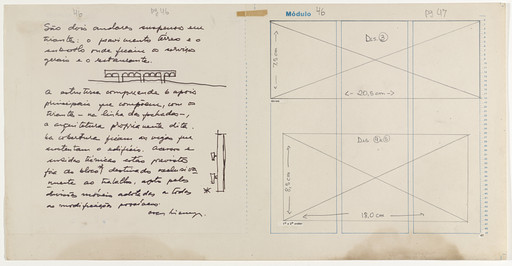 46
pg 46
São dois andares suspensos em
tirantes: o pavimento térreo e o
subsolo onde ficam os serviços
gerais e o restaurante.
A estrutura compreende 6 apoios
principais que compõem, com os
tirantes – na linha das fachadas –,
a arquitetura propriamente dita.
Na cobertura ficam as vigas que
sustentam o edifício. Acessos e
unidades técnicas estão previstos
fora do bloco, destinado exclusiva
mente ao trabalho, solto pelas
divisões móveis adotadas e todas
as modificações possíveis.
Oscar Niemeyer
Módulo 46
pg 47
Des. 3
2,5 cm
20,5 cm
Des.
8,5 cm
18,0 cm